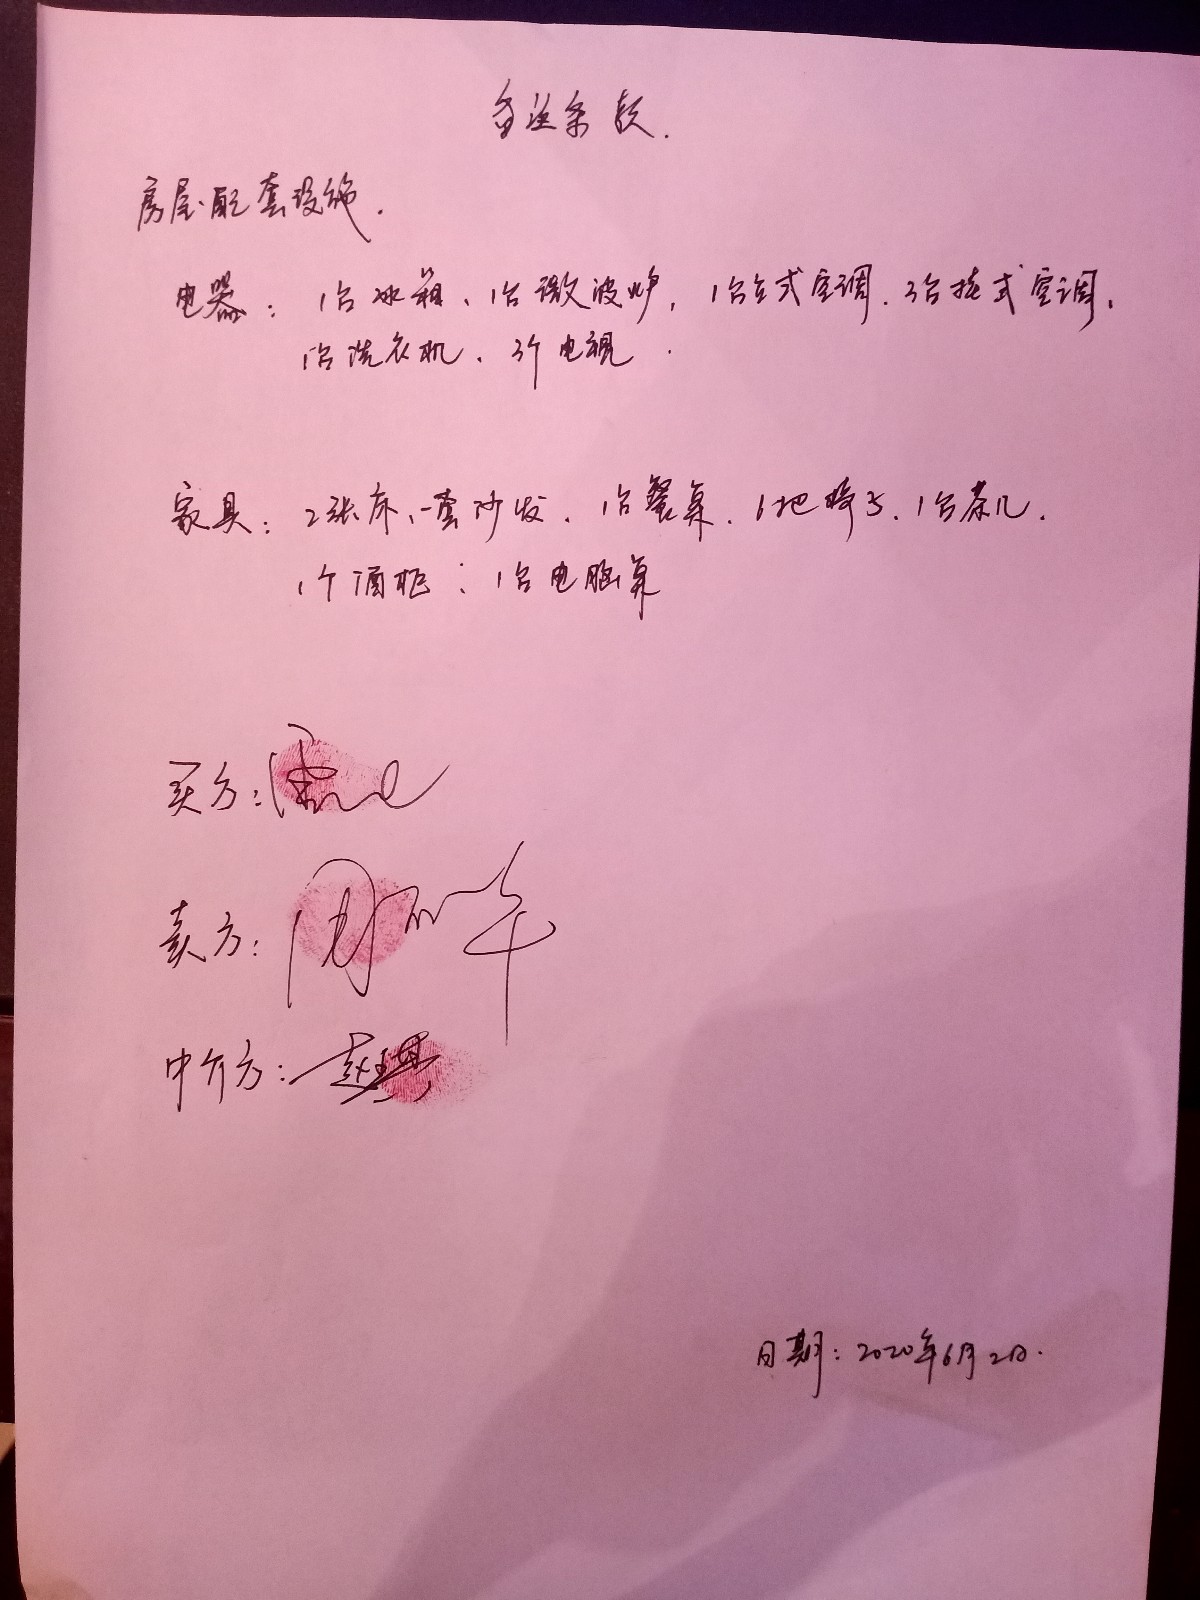 备注条款.
房屋配套设施.
电器: 1台冰箱、1台微波炉, 1台立式空调. 3台挂式空调,
1台洗衣机、3个电视.
家具: 2张床、一套沙发. 1台餐桌. 6把椅子. 1台茶几.
1个酒柜; 1台电脑桌
买方:
卖方: 周 华
中介方: 赵
日期: 2020年6月2日.